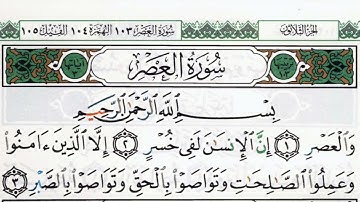 سُورَةُ العَصْرِ ١٠٣ الهُمَزَةِ ١٠٤ الفِيلِ ١٠٥ الجُزْءُ الثَّلَاثُونَ
سُورَةُ العَصْرِ
بِسْمِ ٱللَّهِ ٱلرَّحْمَٰنِ ٱلرَّحِيمِ
وَٱلْعَصْرِ ١ إِنَّ ٱلْإِنسَٰنَ لَفِى خُسْرٍ ٢ إِلَّا ٱلَّذِينَ ءَامَنُوا۟
وَعَمِلُوا۟ ٱلصَّٰلِحَٰتِ وَتَوَاصَوْا۟ بِٱلْحَقِّ وَتَوَاصَوْا۟ بِٱلصَّبْرِ ٣